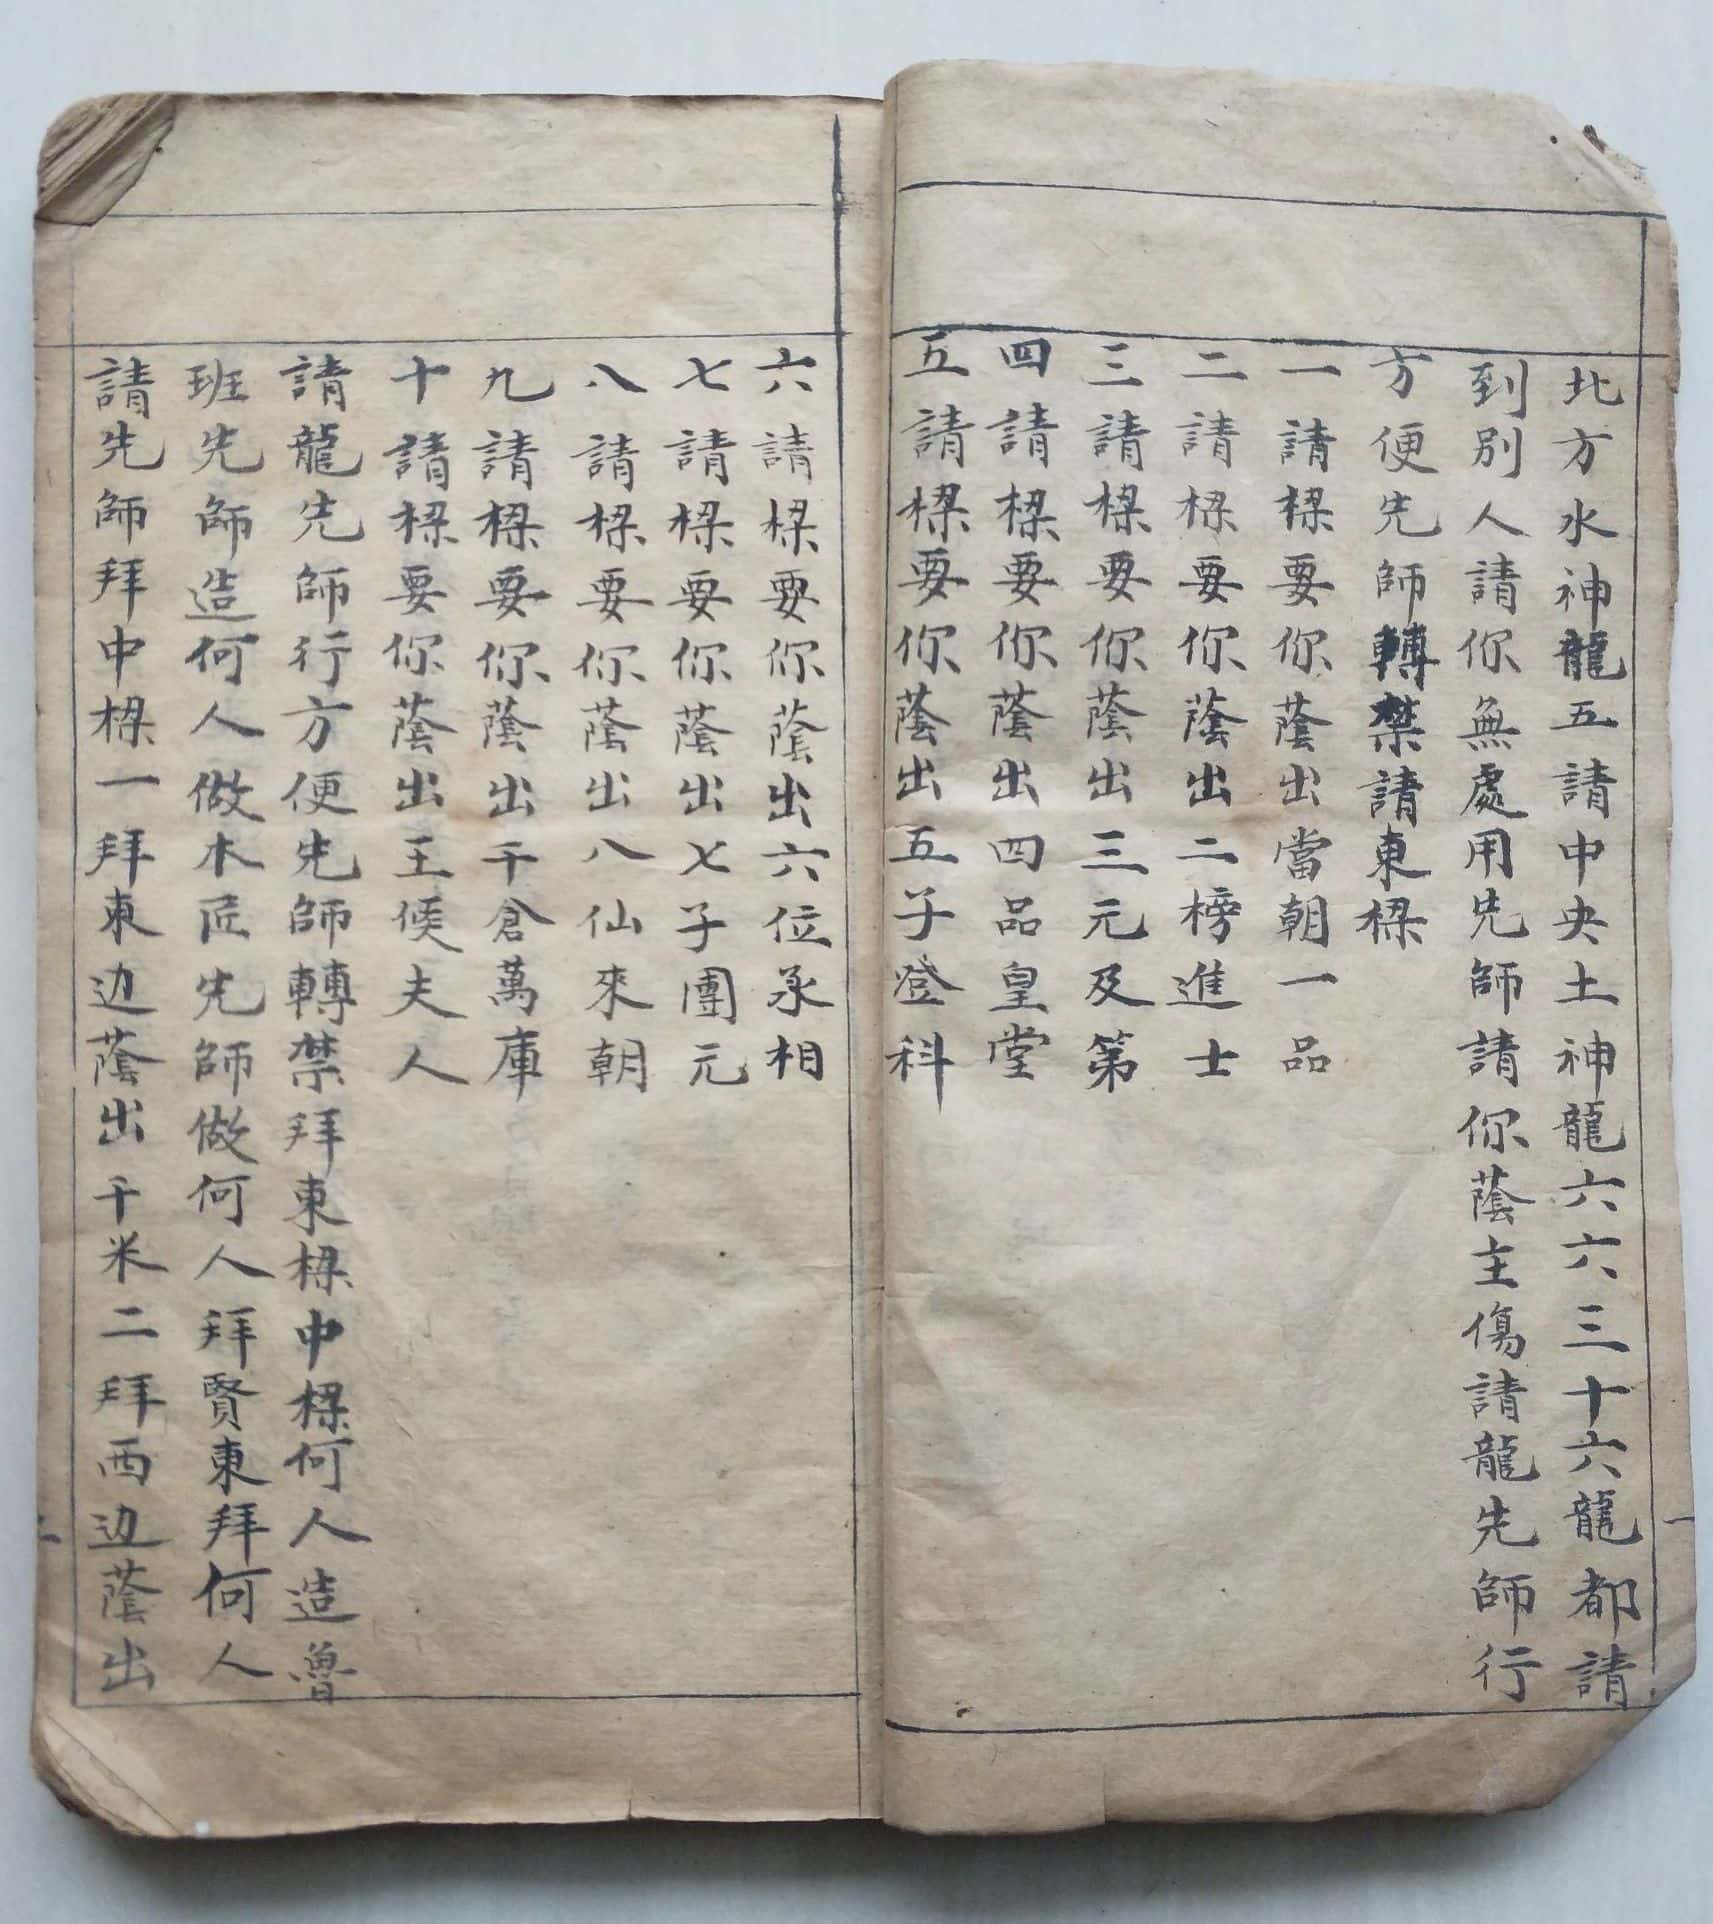 北方水神龍五請中央土神龍六六三十六龍都請
到別人請你無處用先師請你蔭主傷請龍先師行
方便先師轉禁請東樑
一請樑要你蔭出當朝一品
二請樑要你蔭出二榜進士
三請樑要你蔭出三元及第
四請樑要你蔭出四品皇堂
五請樑要你蔭出五子登科
一
六請樑要你蔭出六位丞相
七請樑要你蔭出七子團元
八請樑要你蔭出八仙來朝
九請樑要你蔭出千倉萬庫
十請樑要你蔭出王侯夫人
請龍先師行方便先師轉禁拜東樑中樑何人造魯
班先師造何人做木匠先師做何人拜賢東拜何人
請先師拜中樑一拜東边蔭出千米二拜西边蔭出